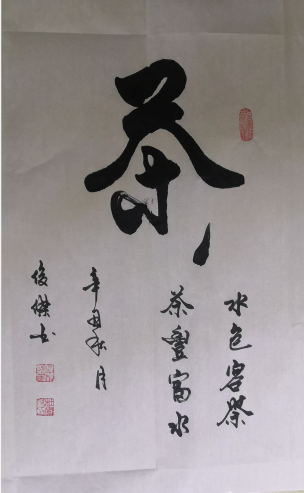 茶
水包容茶
茶豐富水
辛丑秋月
俊傑书